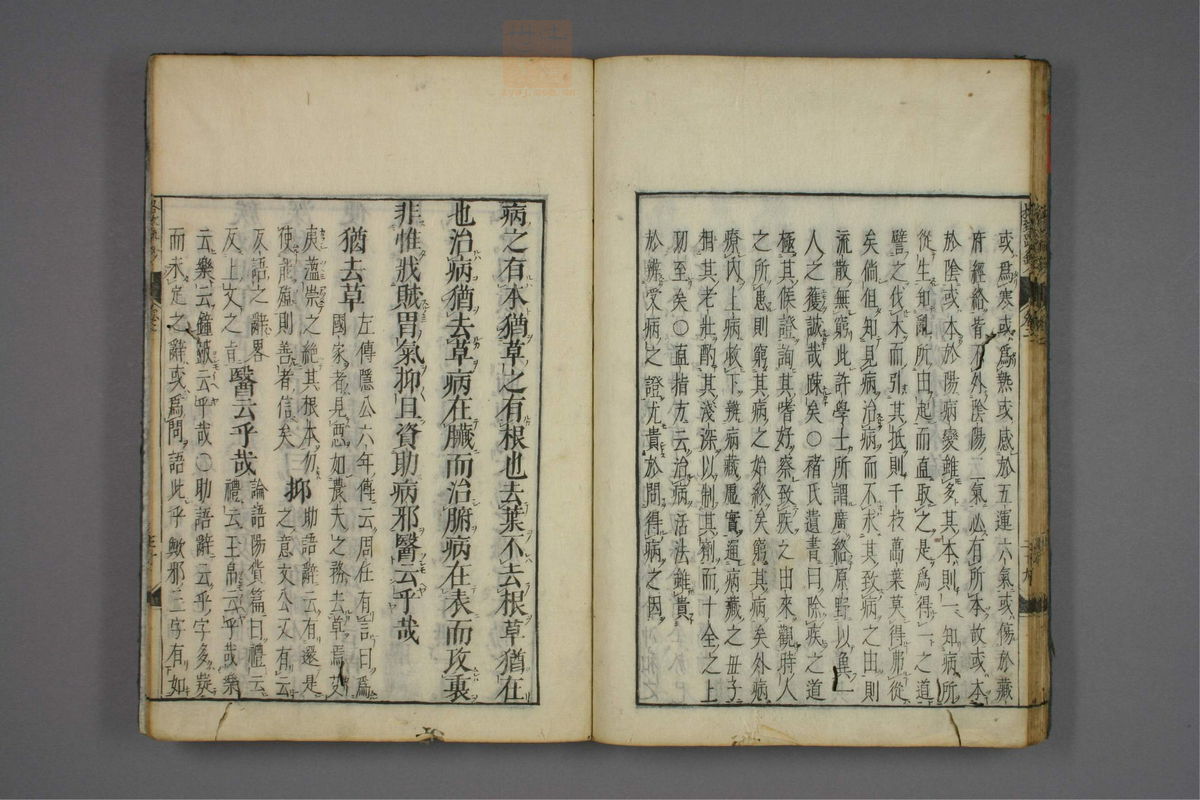 或爲寒或爲熱或感於五運六氣或傷於藏
府經絡者不外陰陽二氣必有所本故或本
於陰或本於陽病變雖多其本則一知病所
從生知亂所由起而直取之是爲得一之道
譬之伐木而引其柢則千枝萬葉莫得弗從
矣倘但知見病治病而不求其致病之由則
流散無窮此許學士所謂廣絡原野以漁一
人之獲誠哉疎矣○褚氏遺書曰除疾之道
極其候證詢其嗜好察致疾之由來觀時人
之所患則窮其病之始終矣窮其病矣外病
療內上病救下辨病藏虛實通病藏之母子
相其老壯酌其淺深以制其劑而十全之上
功至矣○直指方云治病活法雖貴
於辨受病之證尤貴於問得病之因
病之有本猶草之有根也去葉不去根草猶在
也治病猶去草病在臟而治腑病在表而攻裏
非惟戕賊胃氣抑且資助病邪醫云乎哉
猶去草 左傳隱公六年傳云周任有言曰爲
國家者見惡如農夫之務去草焉芟
夷薀崇之絶其根本勿
使能殖則善者信矣 抑 助語辭云有還是
之意文公又有云
反語之辭畧
反上文之㫖 醫云乎哉 論語陽貨篇曰禮云
禮云玉帛云乎哉樂
云樂云鐘皷云乎哉○助語辭云乎字多疑
而未定之辭或爲問語此乎歟邪三字有如